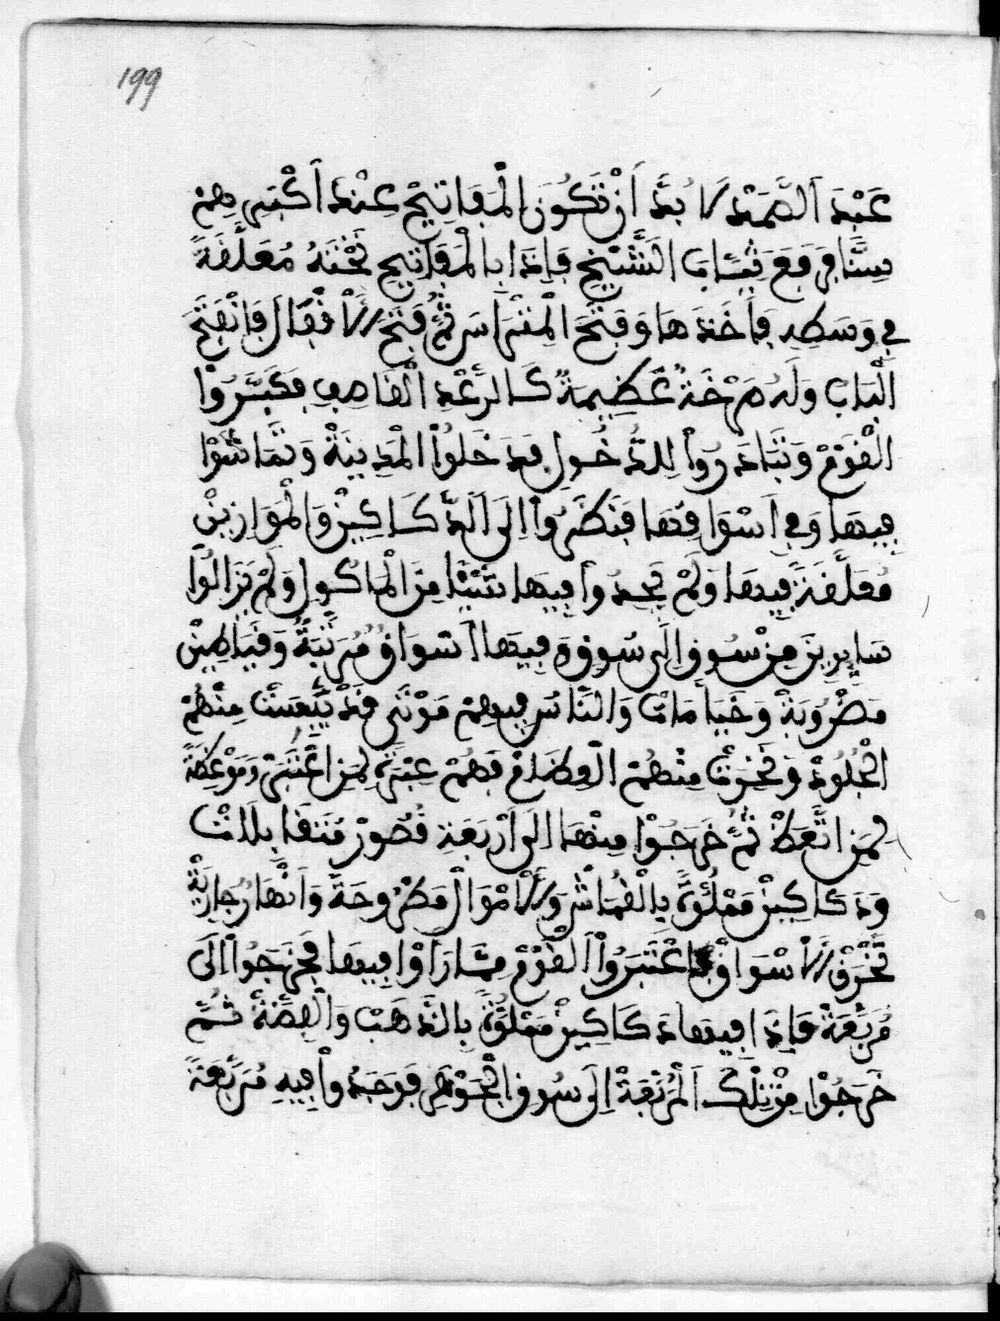 199
عَبْدَ الصَّمَدْ لَا بُدَّ أَنْ تَكُونَ الْمَفَاتِيحْ عِنْدَ أَكْبَرِهِمْ
سِنًّا فَرَفَعَ ثِيَابَ الشَّيْخِ فَإِذَا بِالْمَفَاتِيحِ تَحْتَهُ مُعَلَّقَةً
فِي وَسَطِهِ فَأَخَذَهَا وَفَتَحَ الْمِتْرَاسَ ثُمَّ فَتَحَ الْأَقْفَالَ فَانْفَتَحَ
الْبَابُ وَلَهُ صَرْخَةٌ عَظِيمَةٌ كَالرَّعْدِ الْقَاصِفِ فَكَبَّرُوا
الْقَوْمْ وَتَبَادَرُوا لِلدُّخُولِ فَدَخَلُوا الْمَدِينَةْ وَتَمَاشَوْا
فِيهَا وَفِي أَسْوَاقِهَا فَنَظَرُوا إِلَى الدَّكَاكِينْ وَالْمَوَازِينْ
مُعَلَّقَةً فِيهَا وَلَمْ يَجِدُوا فِيهَا شَيْئًا مِنَ الْمَاكُولِ وَلَمْ يَزَالُوا
سَايِرِينَ مِنْ سُوقٍ إِلَى سُوقٍ وَفِيهَا أَسْوَاقٌ مُرَتَّبَةٌ وَقَيَاطِينْ
مَضْرُوبَةْ وَخَيَامَاتْ وَالنَّاسُ فِيهِمْ مَوْتَى قَدْ يَبِسَتْ مِنْهُمْ
الْجُلُودْ وَنَخِرَتْ مِنْهُمْ الْعِظَامْ فَهُمْ عِبْرَةً لِمَنِ اعْتَبَرْ وَمَوْعِظَةً
لِمَنِ اتَّعَظْ ثُمَّ خَرَجُوْا مِنْهَا إِلَى أَرْبَعَةِ قُصُورْ مُتَقَابِلَاتْ
وَدَكَاكِينْ مَمْلُوَّةً بِالْقُمَاشْ وَالْأَمْوَالْ مَطْرُوحَةً وَأَنْهَارْ جَارِيَةْ
تَخْرِقْ الْأَسْوَاقْ فَاعْتَبَرُوا الْقَوْمْ مِمَّا رَأَوْا فِيهَا فَخَرَجُوا إِلَى
مُرَبَّعَةْ فَإِذَا فِيهَا دَكَاكِينْ مَمْلُوَّةً بِالذَّهَبْ وَالْفِضَّةْ ثُمَّ
خَرَجُوْا مِنْ تِلْكَ الْمُرَبَّعَةْ إِلَى سُوقِ الْجَوْهَرِ فَوَجَدُوا فِيهِ مُرَبَّعَةً